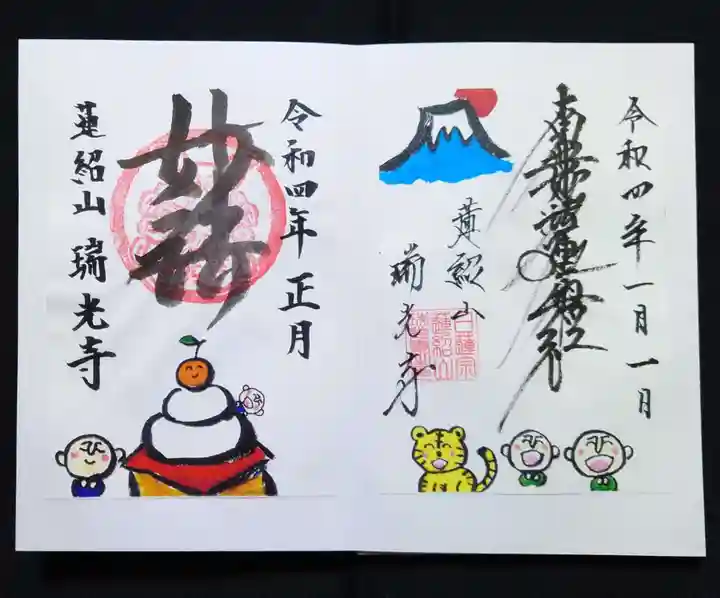 令和四年一月一日
南無妙法蓮華経
蓮紹山
瑞光寺
日蓮宗
蓮紹山
令和四年 正月
妙法
蓮紹山 瑞光寺